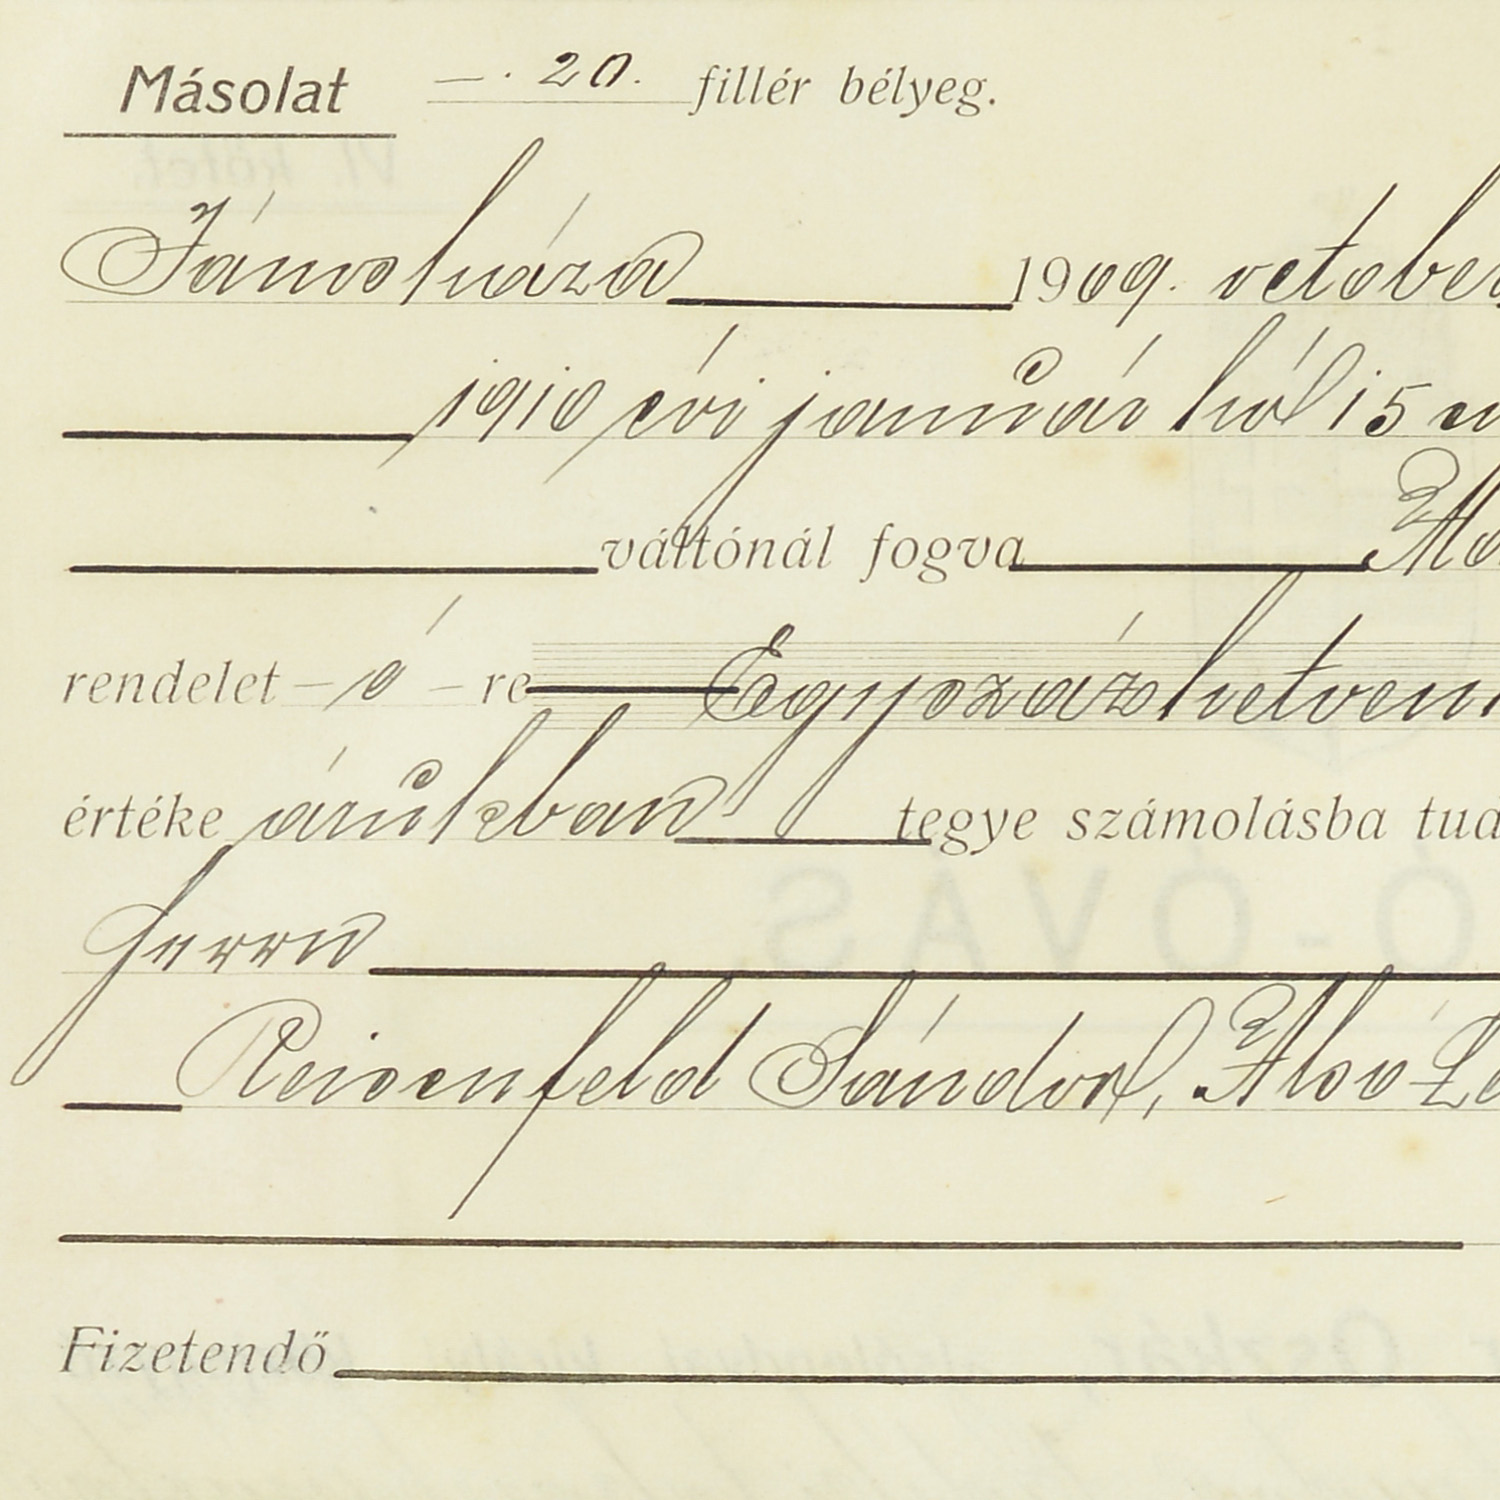 Másolat —. 20. fillér bélyeg.
Jánosháza 1909. october
1910 évi január hó 15
váltónál fogva
rendelet – ő – re Egyszázhetven
értéke árúkban tegye számolásba tud
Herrn
Reisenfeld Sándor, Alsó-
Fizetendő